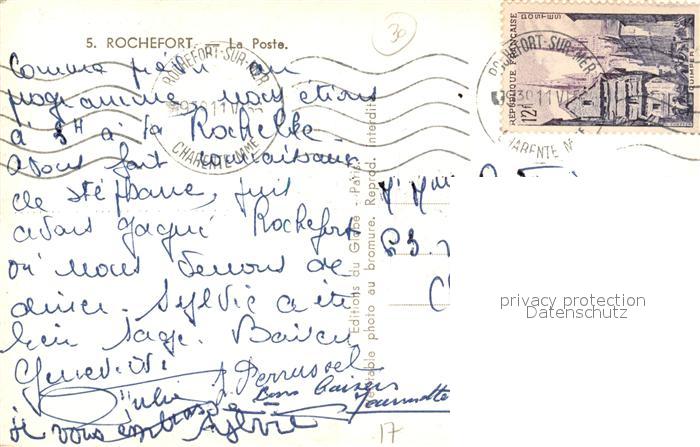 30
5. ROCHEFORT. — La Poste.
Comme prévu au
programme, nous étions
à 5H à la Rochelle.
Avons fait connaissance
de Stéphane, puis
avons gagné Rochefort
où nous venons de
diner. Sylvie a été
bien sage. Baisers
Geneviève
Perrussel
Julie
Bons baisers
je vous embrasse Sylvie
17
ROCHEFORT-SUR-MER
CHARENTE MME
Editions du Globe - Paris.
Véritable photo au bromure. Reprod. interdite
POSTES
RÉPUBLIQUE FRANÇAISE
12F
QUIMPER
ROCHEFORT-SUR-MER
CHARENTE MME
M. Mme
privacy protection
Datenschutz